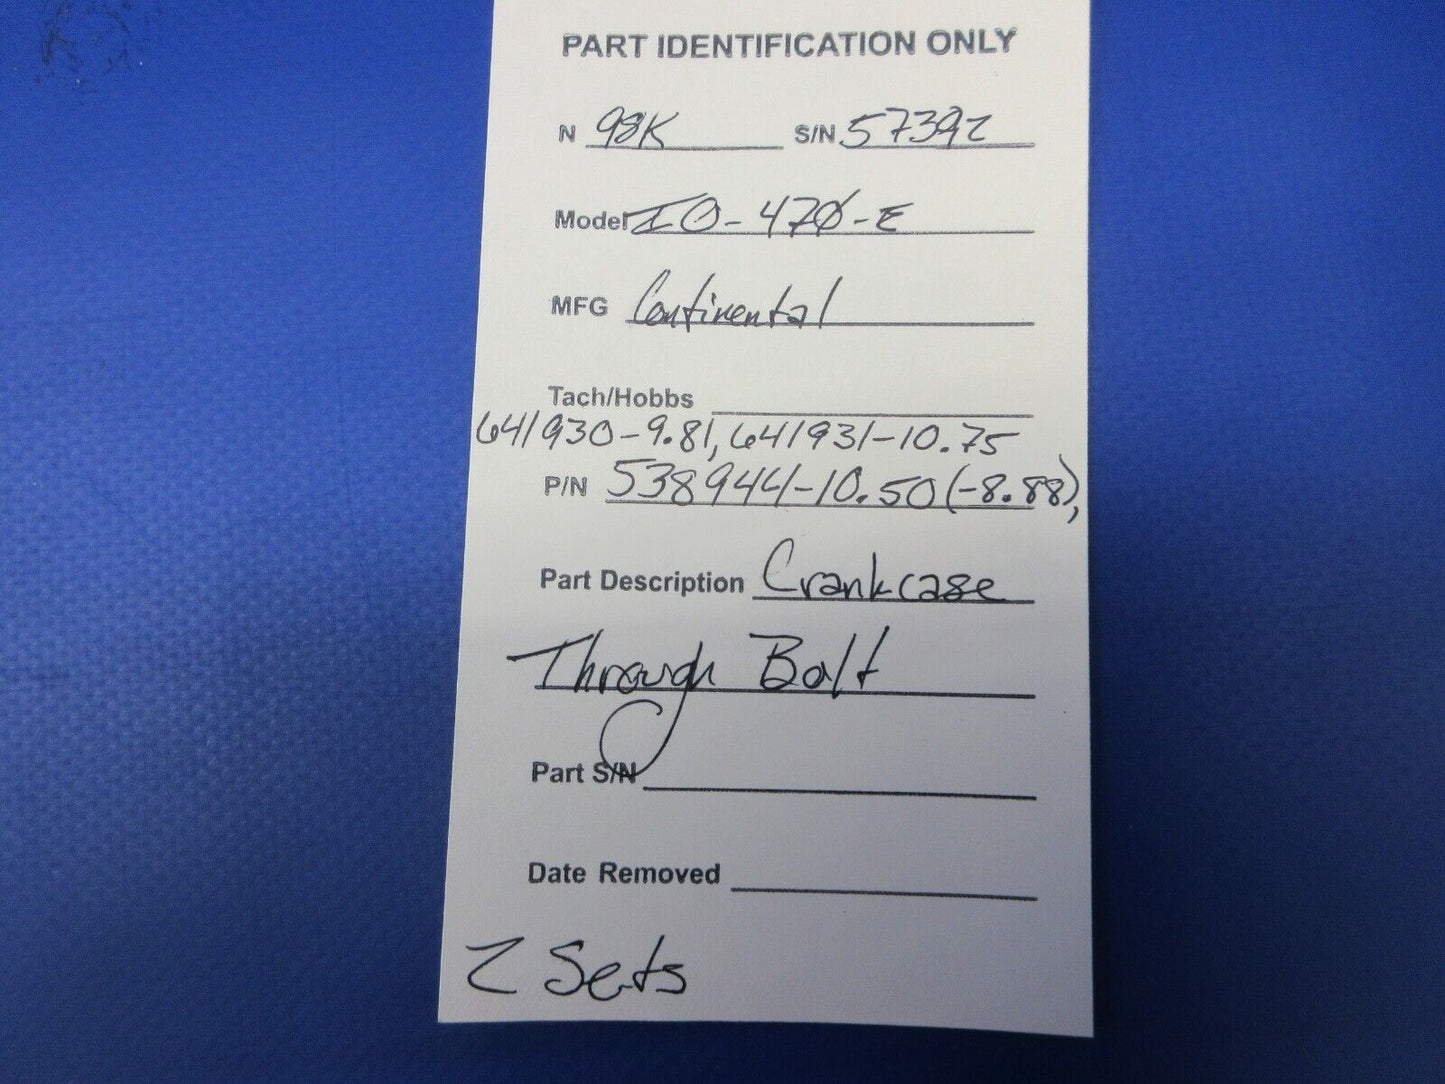 PART IDENTIFICATION ONLY
N 98K S/N 57392
Model IO-470-E
MFG Continental
Tach/Hobbs
641930-9.81, 641931-10.75
P/N 538944-10.50 (-8.88),
Part Description Crankcase
Through Bolt
Part S/N
Date Removed
2 Sets